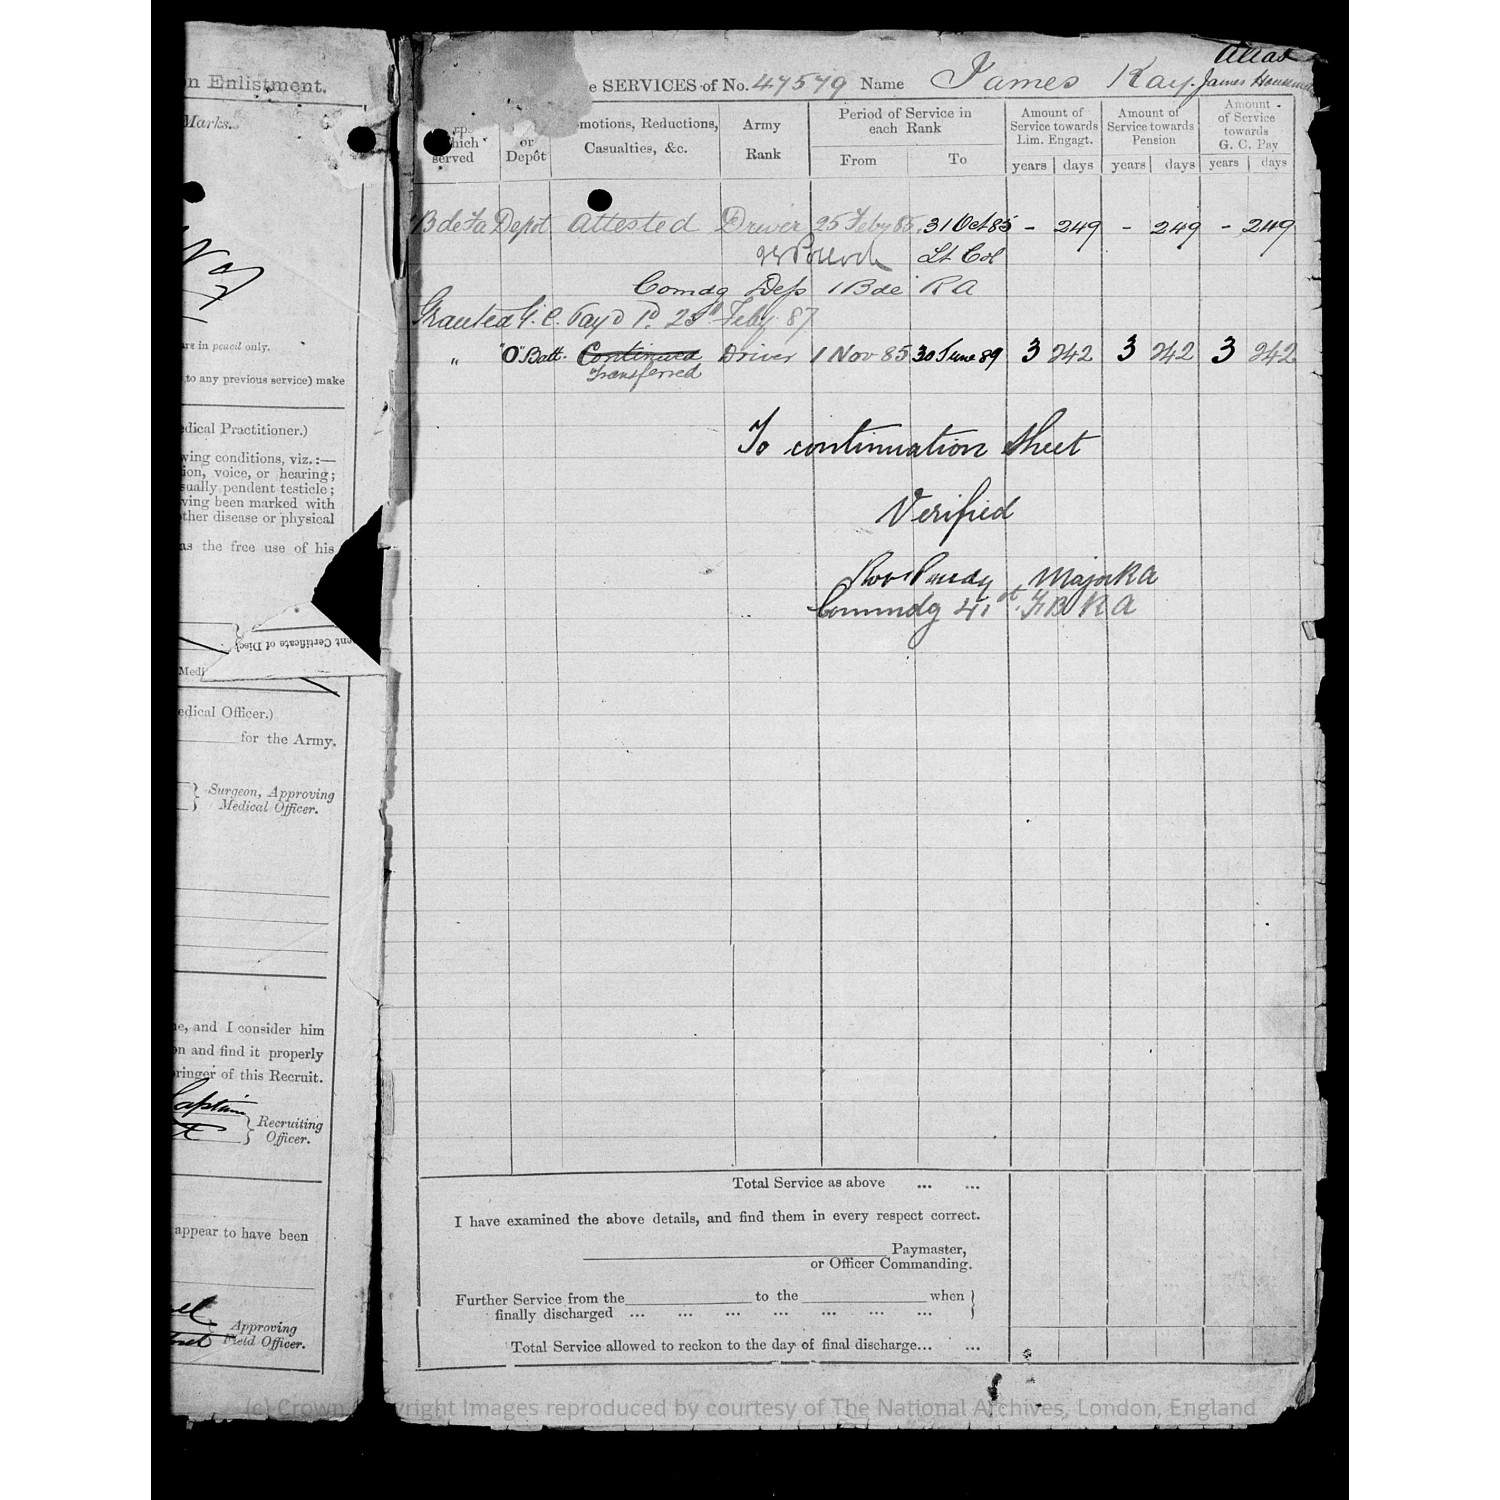 n Enlistment.
Marks.
are in pencil only.
to any previous service) make
edical Practitioner.)
wing conditions, viz.:—
ion, voice, or hearing;
sually pendent testicle;
ving been marked with
ther disease or physical
as the free use of his
ent Certificate of Disch
Medi
edical Officer.)
for the Army.
Surgeon, Approving
Medical Officer.
ne, and I consider him
on and find it properly
ringer of this Recruit.
Captain
Recruiting
Officer.
appear to have been
Approving
Field Officer.
Alias
e SERVICES of No. 47579 Name James Kay. James
rps
which
served
or
Depôt
motions, Reductions,
Casualties, &c.
Army
Rank
Period of Service in
each Rank
From To
Amount of
Service towards
Lim. Engagt.
years days
Amount of
Service towards
Pension
years days
Amount
of Service
towards
G. C. Pay
years days
Bde Fa Depot Attested Driver 25 Feby 85 31 Oct 85 - 249 - 249 - 249
Pollock Lt Col
Comdg Dep 1 Bde RA
Granted G.C. Pay @ 1d. 25th Feby 87
" "O" Batt. Continued Driver 1 Nov 85 30 June 89 3 242 3 242 3 242
Transferred
To continuation sheet
Verified
Major RA
Commdg 41st F.B R A
Total Service as above ... ...
I have examined the above details, and find them in every respect correct.
Paymaster,
or Officer Commanding.
Further Service from the to the when
finally discharged ... ... ... ... ... ... ...
Total Service allowed to reckon to the day of final discharge... ...
(c) Crown Copyright Images reproduced by courtesy of The National Archives, London, England